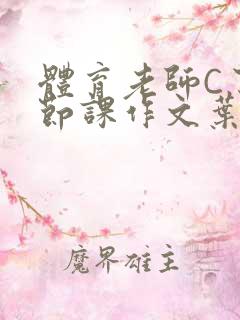 體育老師C
節課作文葉
魔界雄主